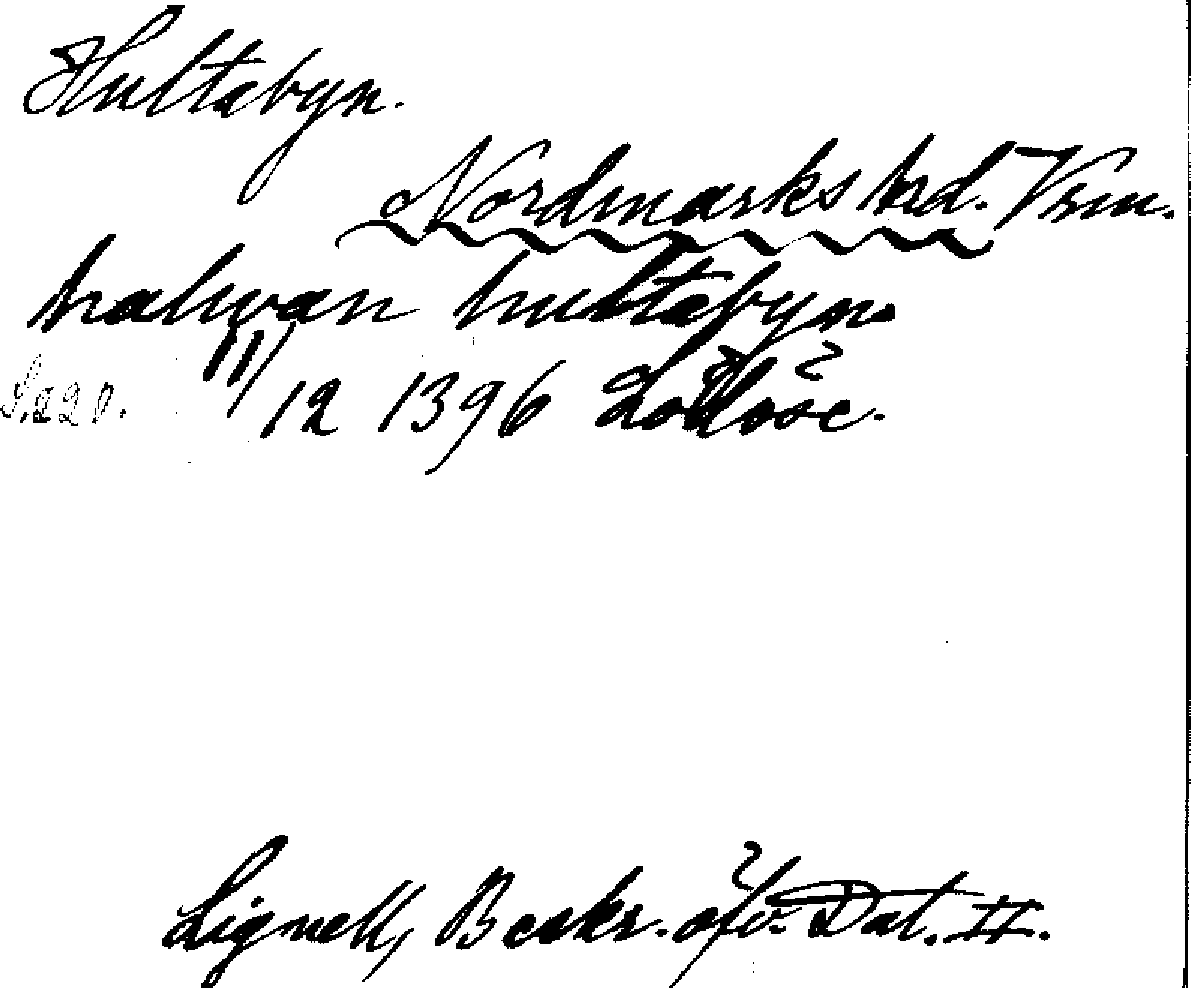 Hultabyn.
Nordmarks hrd. Vrm.
halwan hultabyn
11/12 1396 Lödöse.
Lignell, Beskr. öfv. Dal. II.